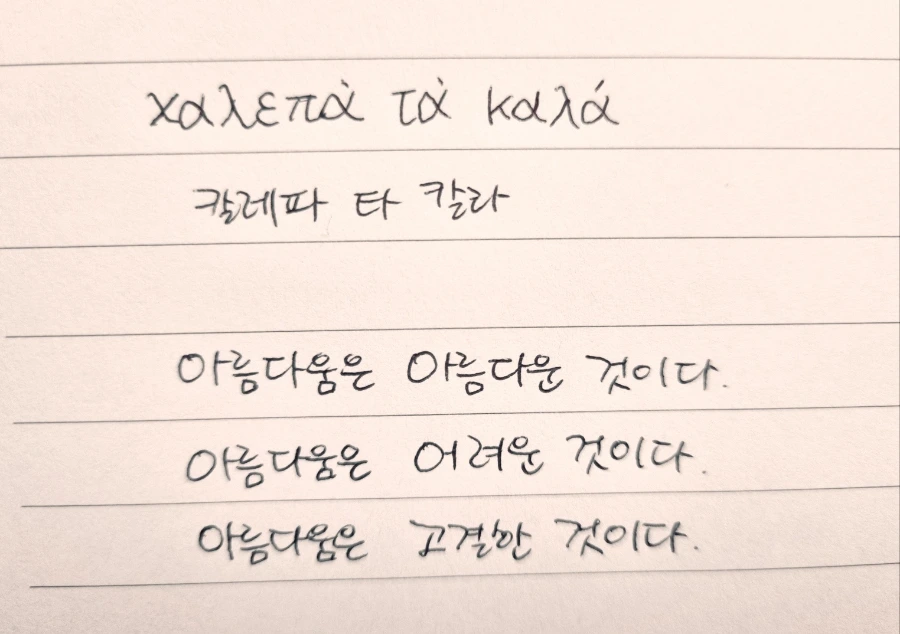 χαλεπὰ τὰ καλά
칼레파 타 칼라
아름다움은 아름다운 것이다.
아름다움은 어려운 것이다.
아름다움은 고결한 것이다.